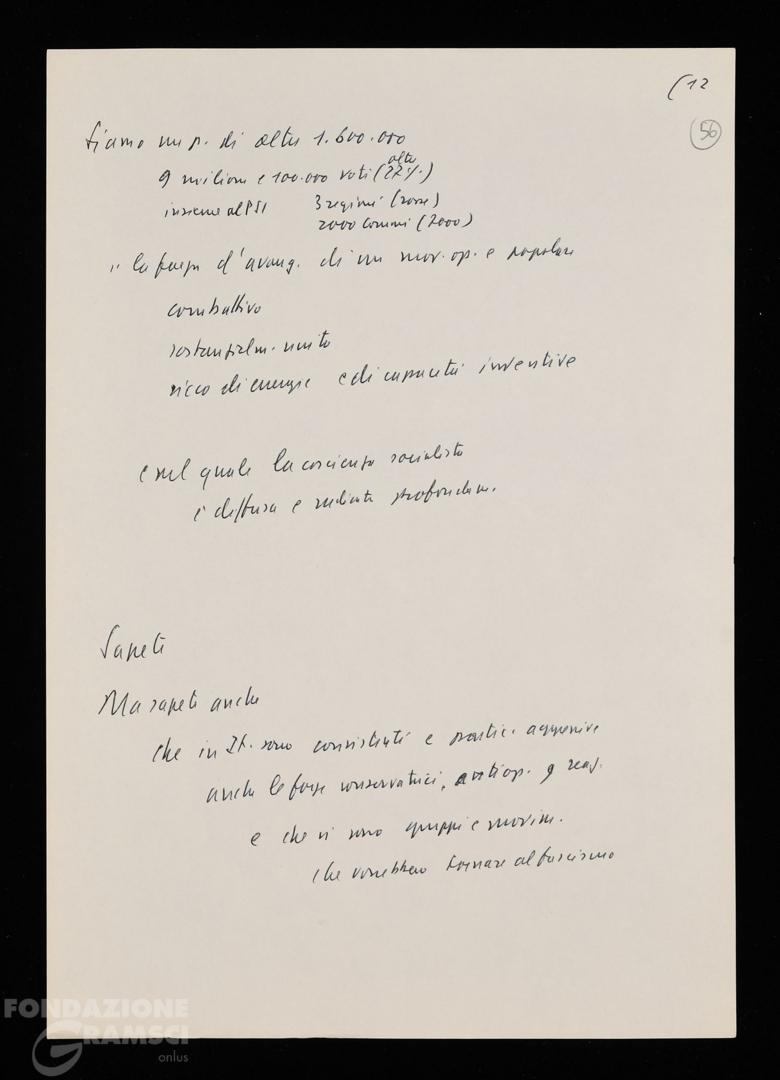 (12
56
Siamo un p. di oltre 1.600.000
oltre
9 milioni e 100.000 voti (27%.)
insieme al PSI 3 regioni (rosse)
2000 Comuni (7000)
" la forza d'avang. di un mov. op. e popolare
combattivo
sostanzialm. unito
ricco di energie e di capacità inventive
e nel quale la coscienza socialista
è diffusa e radicata profondam.
Sapete
Ma sapete anche
che in It. sono consistenti e aggressive
anche le forze conservatrici, antiop. reaz.
e che vi sono gruppi e movim.
che vorrebbero tornare al fascismo
FONDAZIONE
GRAMSCI
onlus